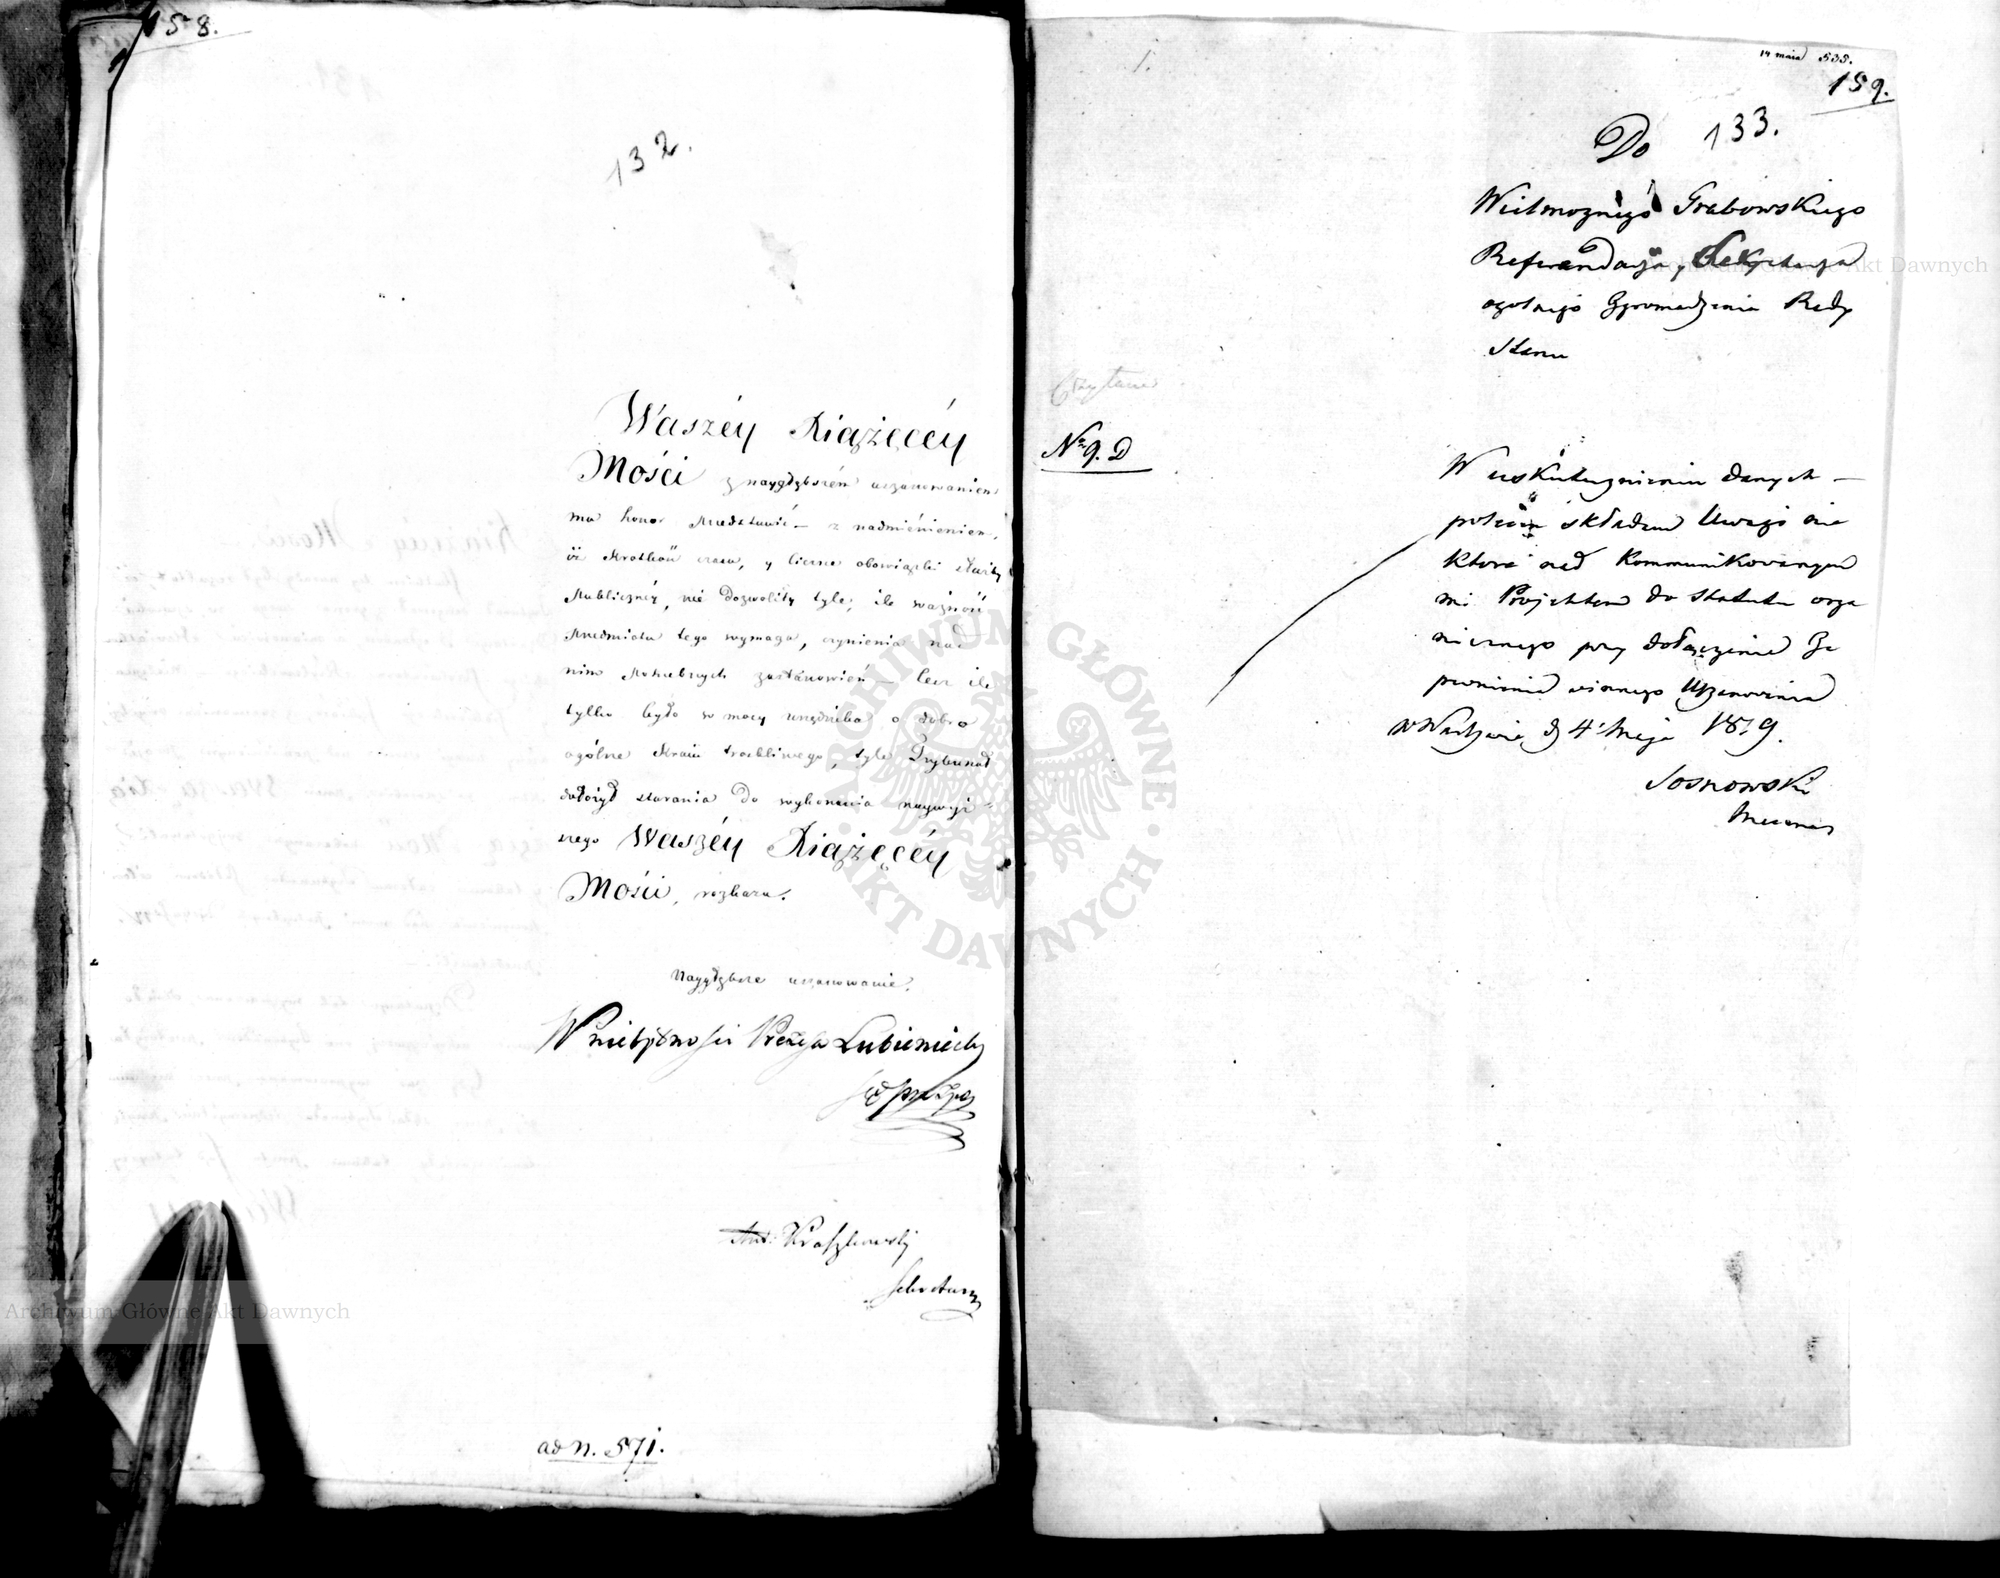 158.
132.
Waszéy Xiążęcéy
Mości z naygłębszém uszanowaniem
ma honor przedstawić — z nadmienieniem,
iż krótkość czasu, y liczne obowiązki służby
Publicznéy, nie dozwoliły tyle, ile ważność
przedmiotu tego wymaga, czynienia nad
nim potrzebnych zastanowień — lecz ile
tylko było w mocy urzędnika o dobro
ogólne kraiu troskliwego, tyle Trybunał
dołożył starania do wykonania naywyż-
szego Waszéy Xiążęcéy
Mości, rozkazu.
Naygłębsze uszanowanie.
W niebytności Prezesa Lubieniecki
Ant: Kraszkowski
Sekretarz
ad n. 571.
14 maia 535.
159.
133.
Do
Wielmożnego Grabowskiego
Referendarza, Sekretarza
ogolnego Zgromadzenia Rady
Stanu
Czytane
No 9. D
W uskutecznieniu danych —
poleceń składam Uwagi nie
które nad kommunikowanym
mi Projektem do Statutu orga
nicznego przy dołączeniu Za
pewnienia winnego Uszanowania
w Warszawie d 4 Maja 1819.
Sosnowski
Mecenas
Archiwum Główne Akt Dawnych
ARCHIWUM GŁÓWNE AKT DAWNYCH
Archiwum Główne Akt Dawnych